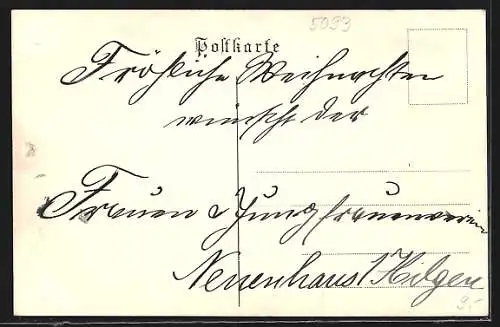 5093
Postkarte
Fröhliche Weihnachten
wünscht der
Frauen & Jungfrauenverein
Neuenhaus / Hilgen
9.-